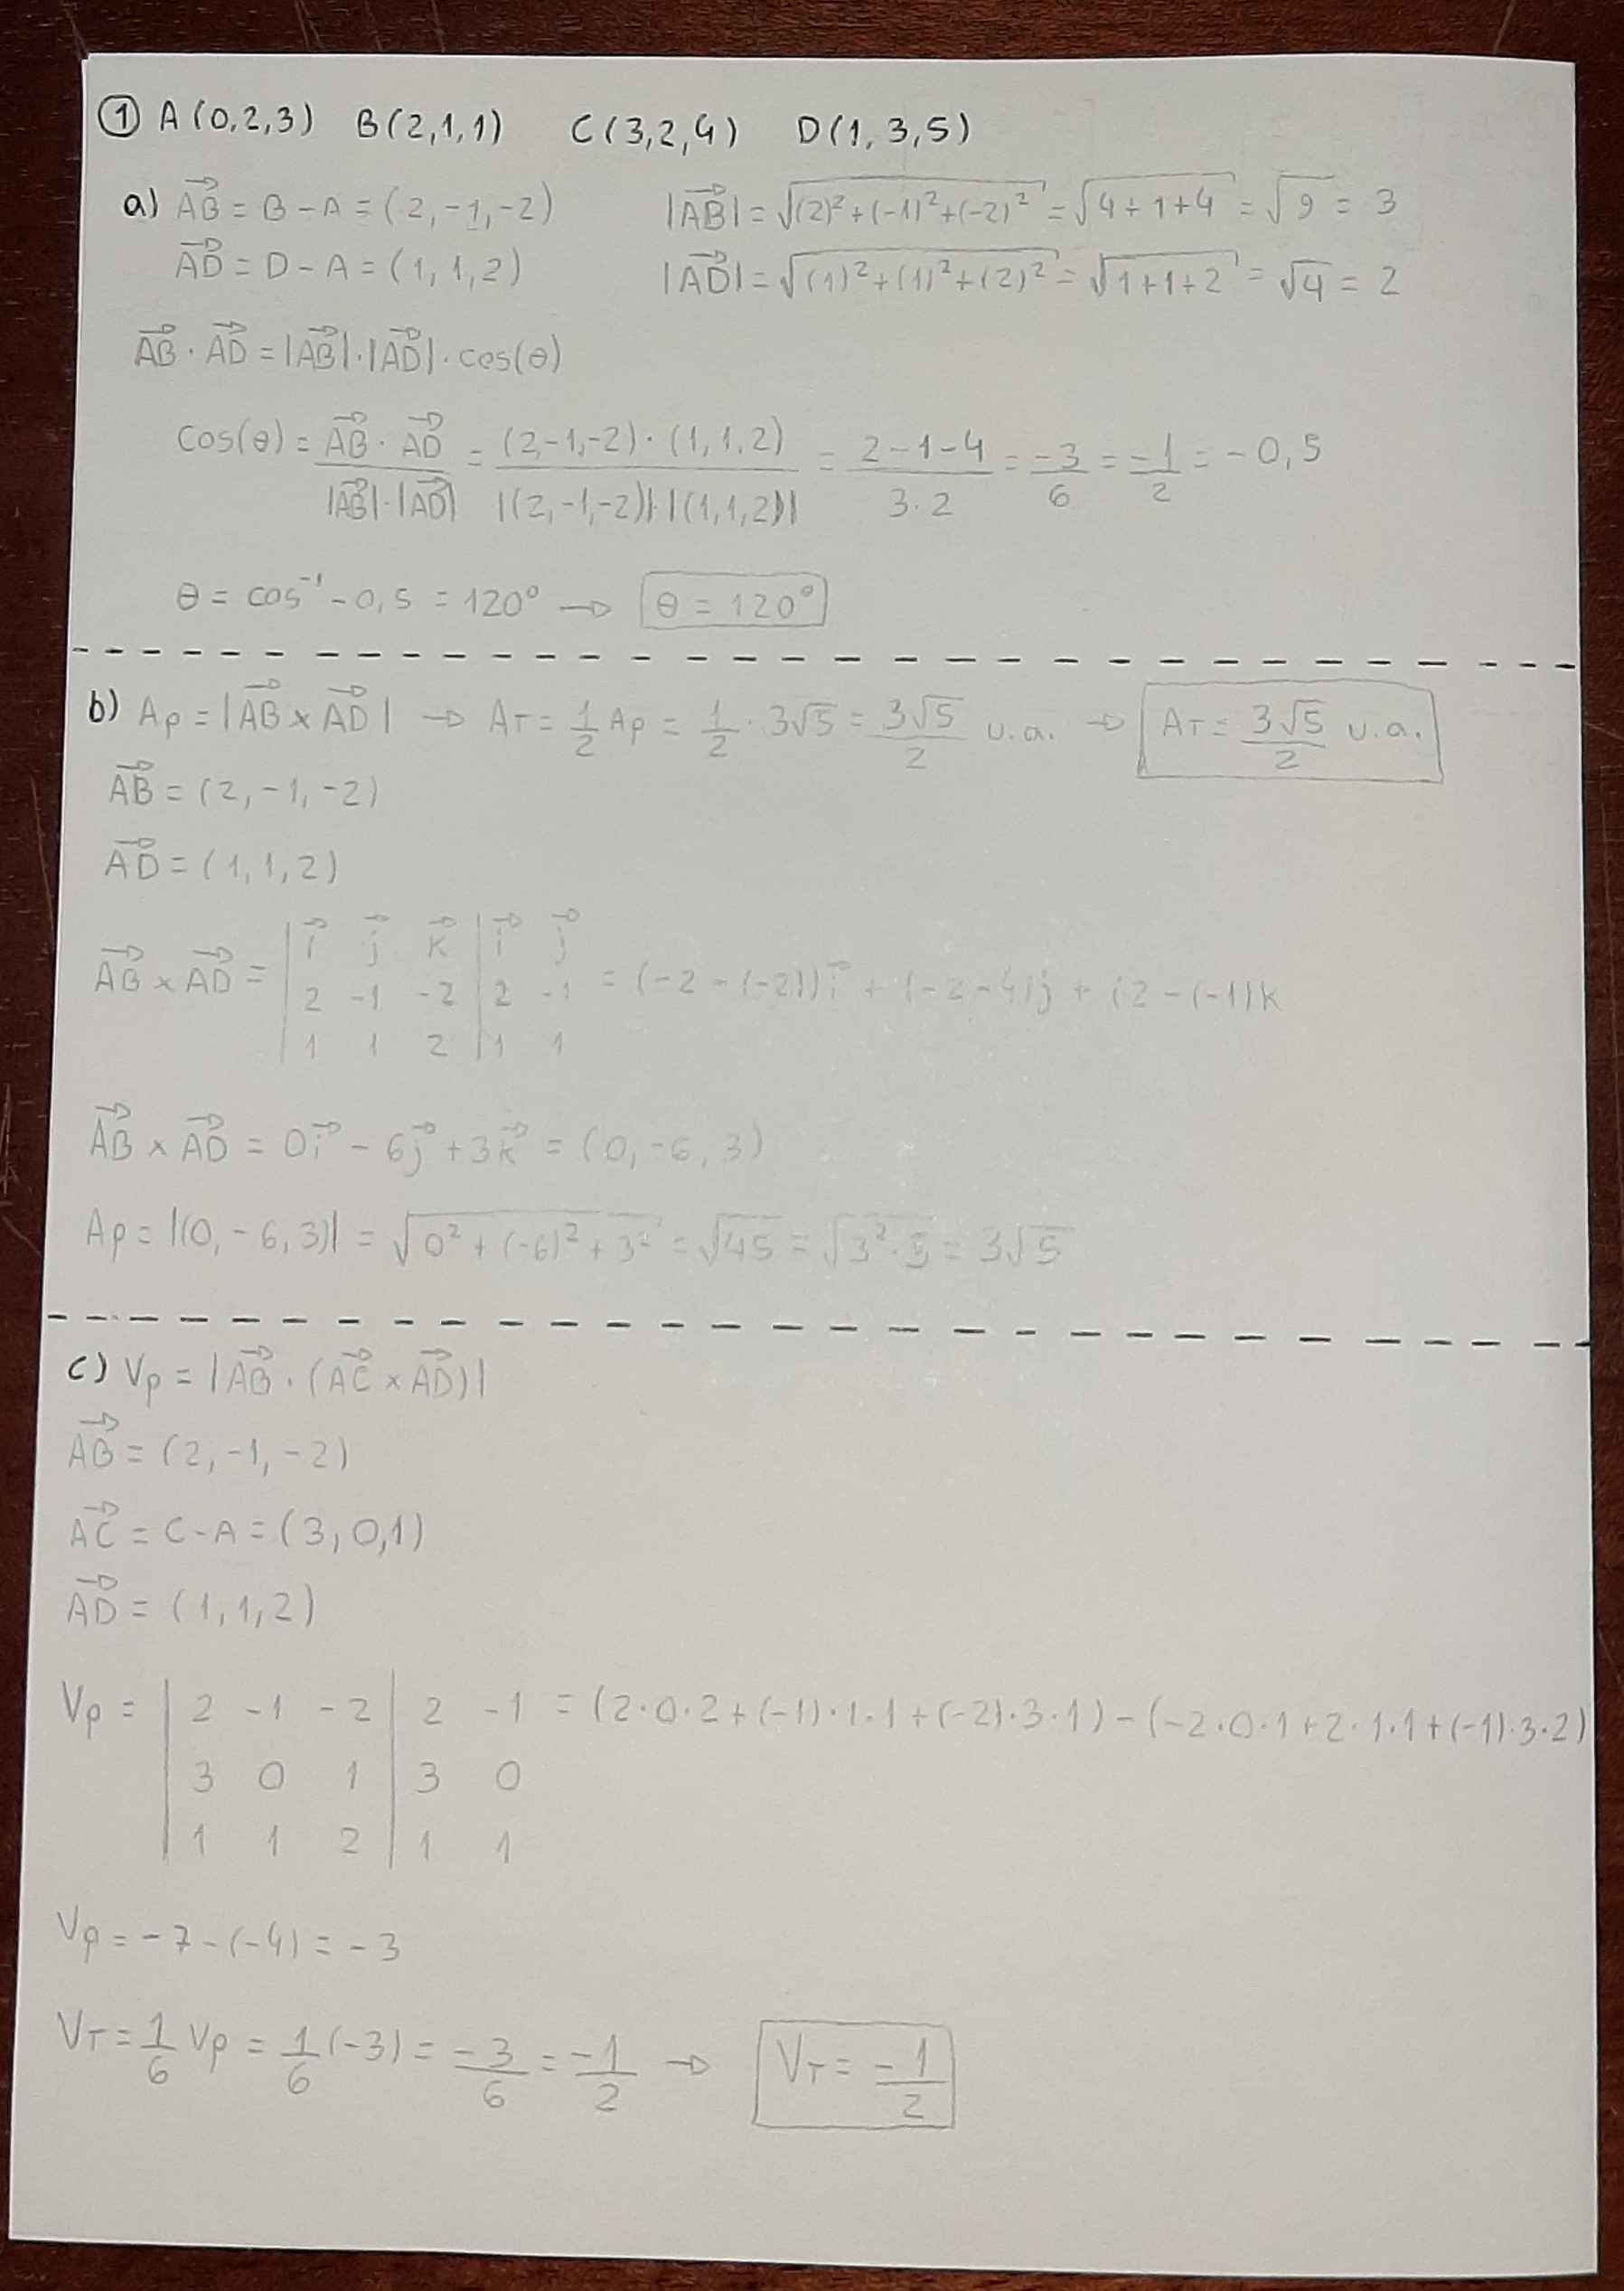 ① A(0,2,3) B(2,1,1) C(3,2,4) D(1,3,5)
a) AB⃗ = B-A = (2,-1,-2) |AB⃗| = √((2)²+(-1)²+(-2)²) = √(4+1+4) = √9 = 3
AD⃗ = D-A = (1,1,2) |AD⃗| = √((1)²+(1)²+(2)²) = √(1+1+2) = √4 = 2
AB⃗ · AD⃗ = |AB⃗|·|AD⃗|·cos(θ)
cos(θ) = (AB⃗ · AD⃗)/(|AB⃗|·|AD⃗|) = ((2-1,-2)·(1,1,2))/(|(2,-1,-2)|·|(1,1,2)|) = (2-1-4)/(3·2) = -3/6 = -1/2 = -0,5
θ = cos⁻¹ -0,5 = 120° → θ = 120°
b) Ap = |AB⃗ × AD⃗| → AT = 1/2 Ap = 1/2 · 3√5 = 3√5/2 u.a. → AT = 3√5/2 u.a.
AB⃗ = (2,-1,-2)
AD⃗ = (1,1,2)
AB⃗ × AD⃗ = | i⃗ j⃗ k⃗ | i⃗ j⃗
2 -1 -2 | 2 -1 = (-2-(-2))i⃗ + (-2-4)j + (2-(-1)k
1 1 2 | 1 1
AB⃗ × AD⃗ = 0i⃗ - 6j⃗ + 3k⃗ = (0,-6,3)
Ap = |(0,-6,3)| = √(0²+(-6)²+3²) = √45 = √(3²·5) = 3√5
c) Vp = |AB⃗ · (AC⃗ × AD⃗)|
AB⃗ = (2,-1,-2)
AC⃗ = C-A = (3,0,1)
AD⃗ = (1,1,2)
Vp = | 2 -1 -2 | 2 -1 = (2·0·2+(-1)·1·1+(-2)·3·1)-(-2·0·1+2·1·1+(-1)·3·2)
3 0 1 | 3 0
1 1 2 | 1 1
Vp = -7-(-4) = -3
VT = 1/6 Vp = 1/6 (-3) = -3/6 = -1/2 → VT = -1/2